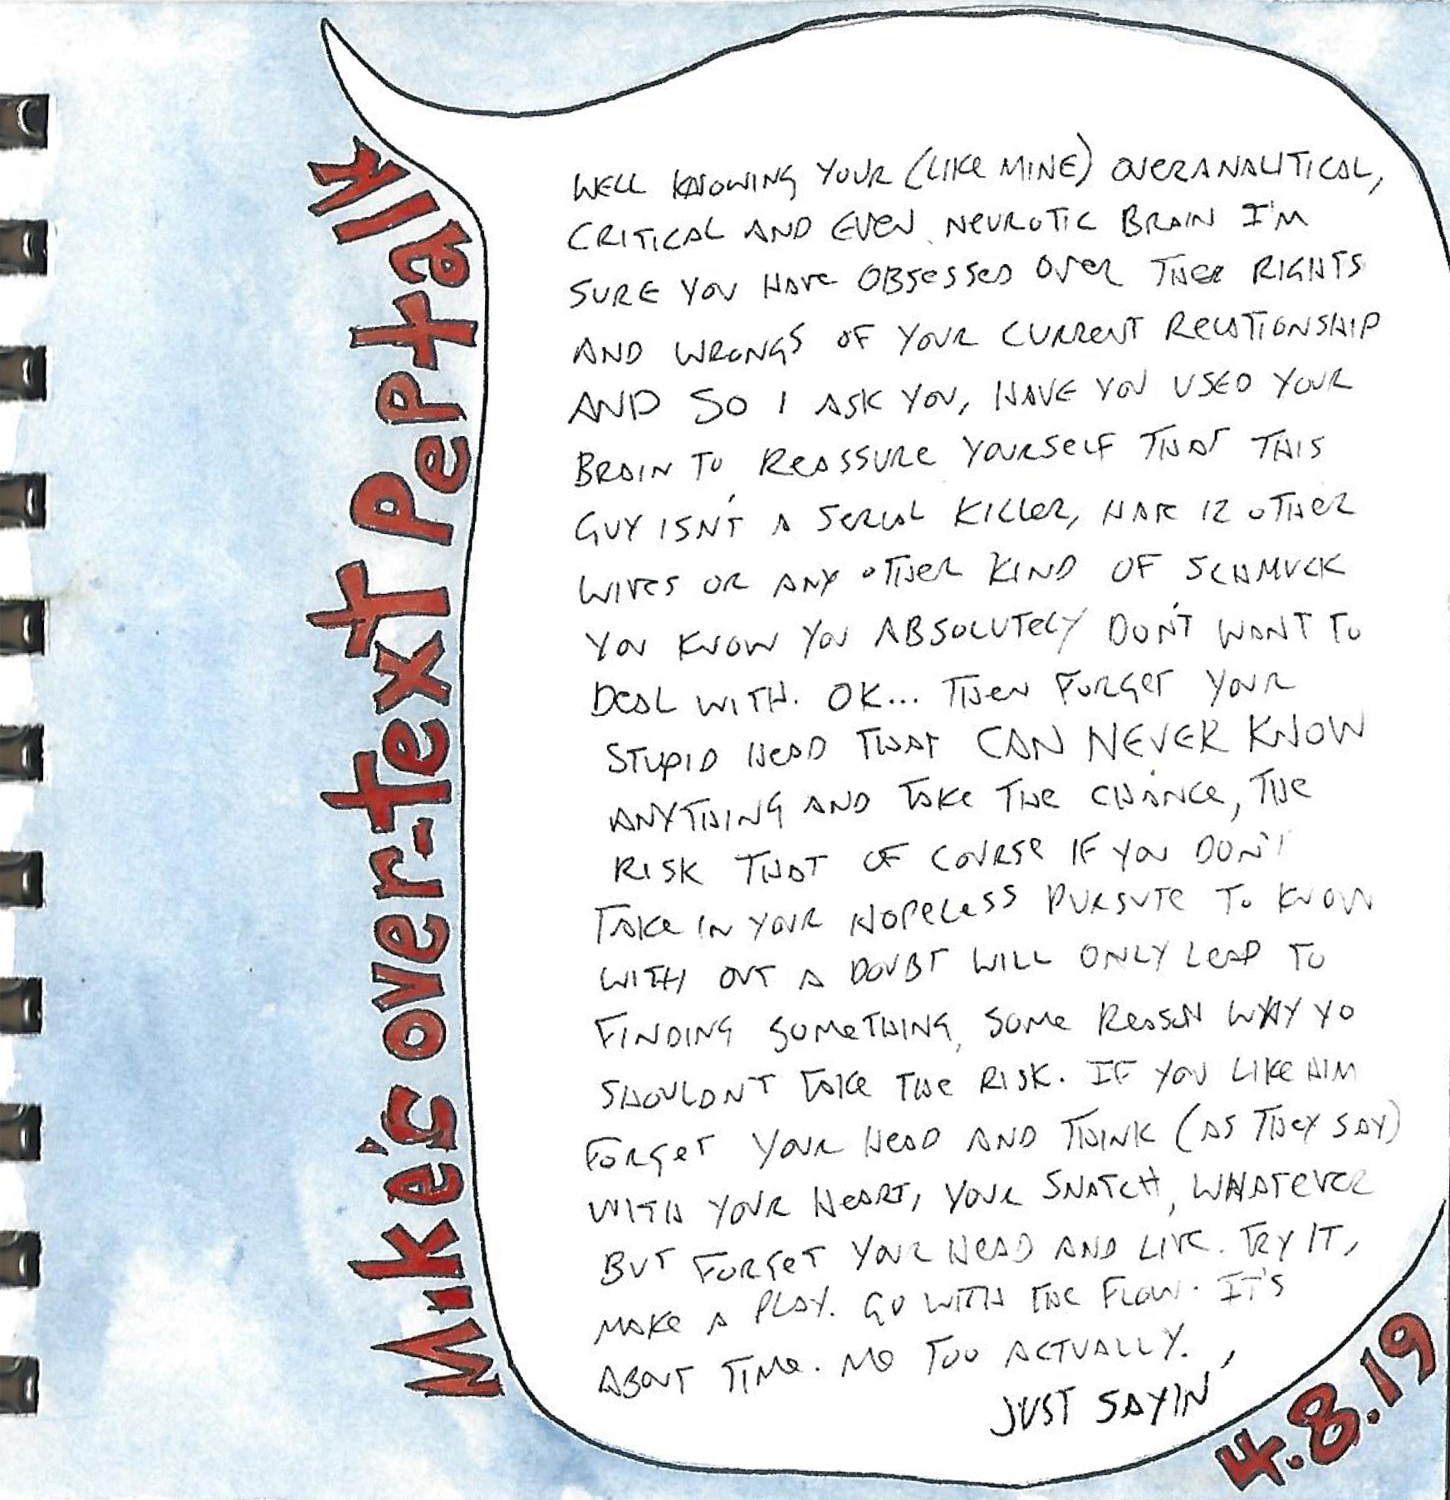 Mike's over-text Pep talk
WELL KNOWING YOUR (LIKE MINE) OVERANALITICAL,
CRITICAL AND EVEN NEUROTIC BRAIN I'M
SURE YOU HAVE OBSESSED OVER THEE RIGHTS
AND WRONGS OF YOUR CURRENT RELATIONSHIP
AND SO I ASK YOU, HAVE YOU USED YOUR
BRAIN TO REASSURE YOURSELF THAT THIS
GUY ISN'T A SERIAL KILLER, HAVE 12 OTHER
WIVES OR ANY OTHER KIND OF SCHMUCK
YOU KNOW YOU ABSOLUTELY DON'T WANT TO
DEAL WITH. OK... THEN FORGET YOUR
STUPID HEAD THAT CAN NEVER KNOW
ANYTHING AND TAKE THE CHANCE, THE
RISK THAT OF COURSE IF YOU DON'T
TAKE IN YOUR HOPELESS PURSUTE TO KNOW
WITH OUT A DOUBT WILL ONLY LEAD TO
FINDING SOMETHING, SOME REASON WHY YO
SHOULDN'T TAKE THE RISK. IF YOU LIKE HIM
FORGET YOUR HEAD AND THINK (AS THEY SAY)
WITH YOUR HEART, YOUR SNATCH, WHATEVER
BUT FORGET YOUR HEAD AND LIVE. TRY IT,
MAKE A PLAY. GO WITH THE FLOW. IT'S
ABOUT TIME. ME TOO ACTUALLY.
JUST SAYIN'
4.8.19